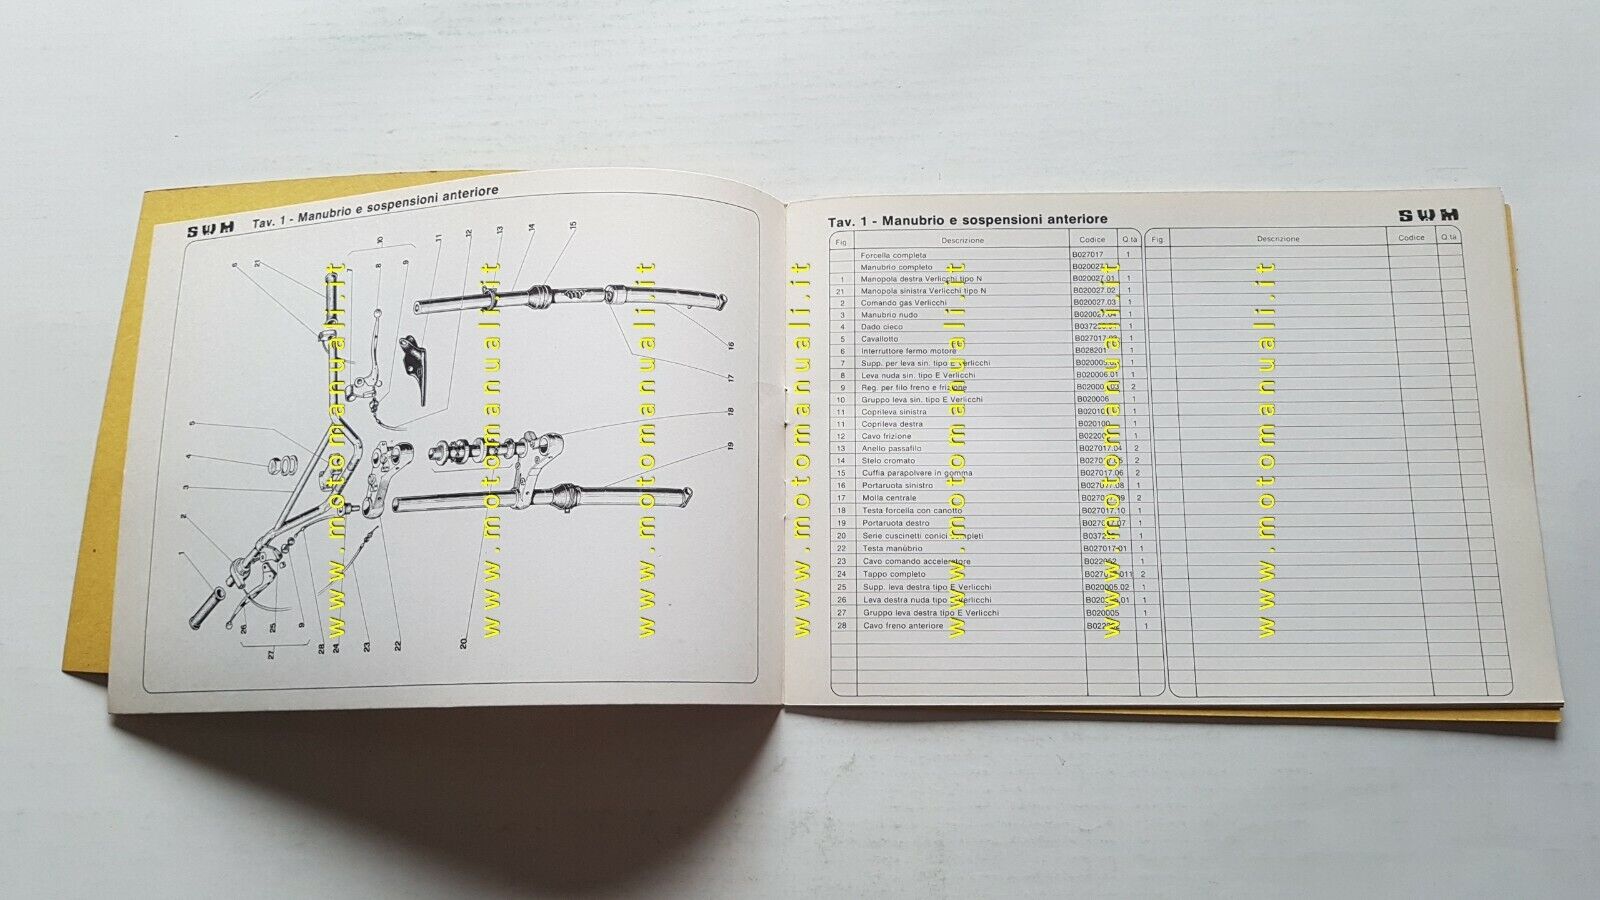 SWM Tav. 1 - Manubrio e sospensioni anteriore
6 21 7 10 8 9 11 12 13 14 15
16
17
18
19
5
4
3
2
1
26 25 9 27 28 24 23 22 20
www.motomanuali.it
www.motomanuali.it
www.motomanuali.it
Tav. 1 - Manubrio e sospensioni anteriore SWM
Fig Descrizione Codice Q.tà Fig Descrizione Codice Q.tà
Forcella completa B027017 1
Manubrio completo
1 Manopola destra Verlicchi tipo N B020027.01 1
21 Manopola sinistra Verlicchi tipo N B020027.02 1
2 Comando gas Verlicchi B020027.03 1
3 Manubrio nudo B020027.04 1
4 Dado cieco 1
5 Cavallotto 1
6 Interruttore fermo motore B028201 1
7 Supp. per leva sin. tipo E Verlicchi 1
8 Leva nuda sin. tipo E Verlicchi B020006.01 1
9 Reg. per filo freno e frizione 2
10 Gruppo leva sin. tipo E Verlicchi B020006 1
11 Coprileva sinistra 1
11 Coprileva destra 1
12 Cavo frizione 1
13 Anello passafilo B027017.04 2
14 Stelo cromato B027017.05 2
15 Cuffia parapolvere in gomma B027017.06 2
16 Portaruota sinistro B027017.08 1
17 Molla centrale B027017.09 2
18 Testa forcella con canotto B027017.10 1
19 Portaruota destro B027017.07 1
20 Serie cuscinetti conici completi 1
22 Testa manubrio B027017.01 1
23 Cavo comando acceleratore 1
24 Tappo completo 2
25 Supp. leva destra tipo E Verlicchi B020005.02 1
26 Leva destra nuda tipo E Verlicchi B020005.01 1
27 Gruppo leva destra tipo E Verlicchi B020005 1
28 Cavo freno anteriore 1
www.motomanuali.it
www.motomanuali.it
www.motomanuali.it
www.motomanuali.it